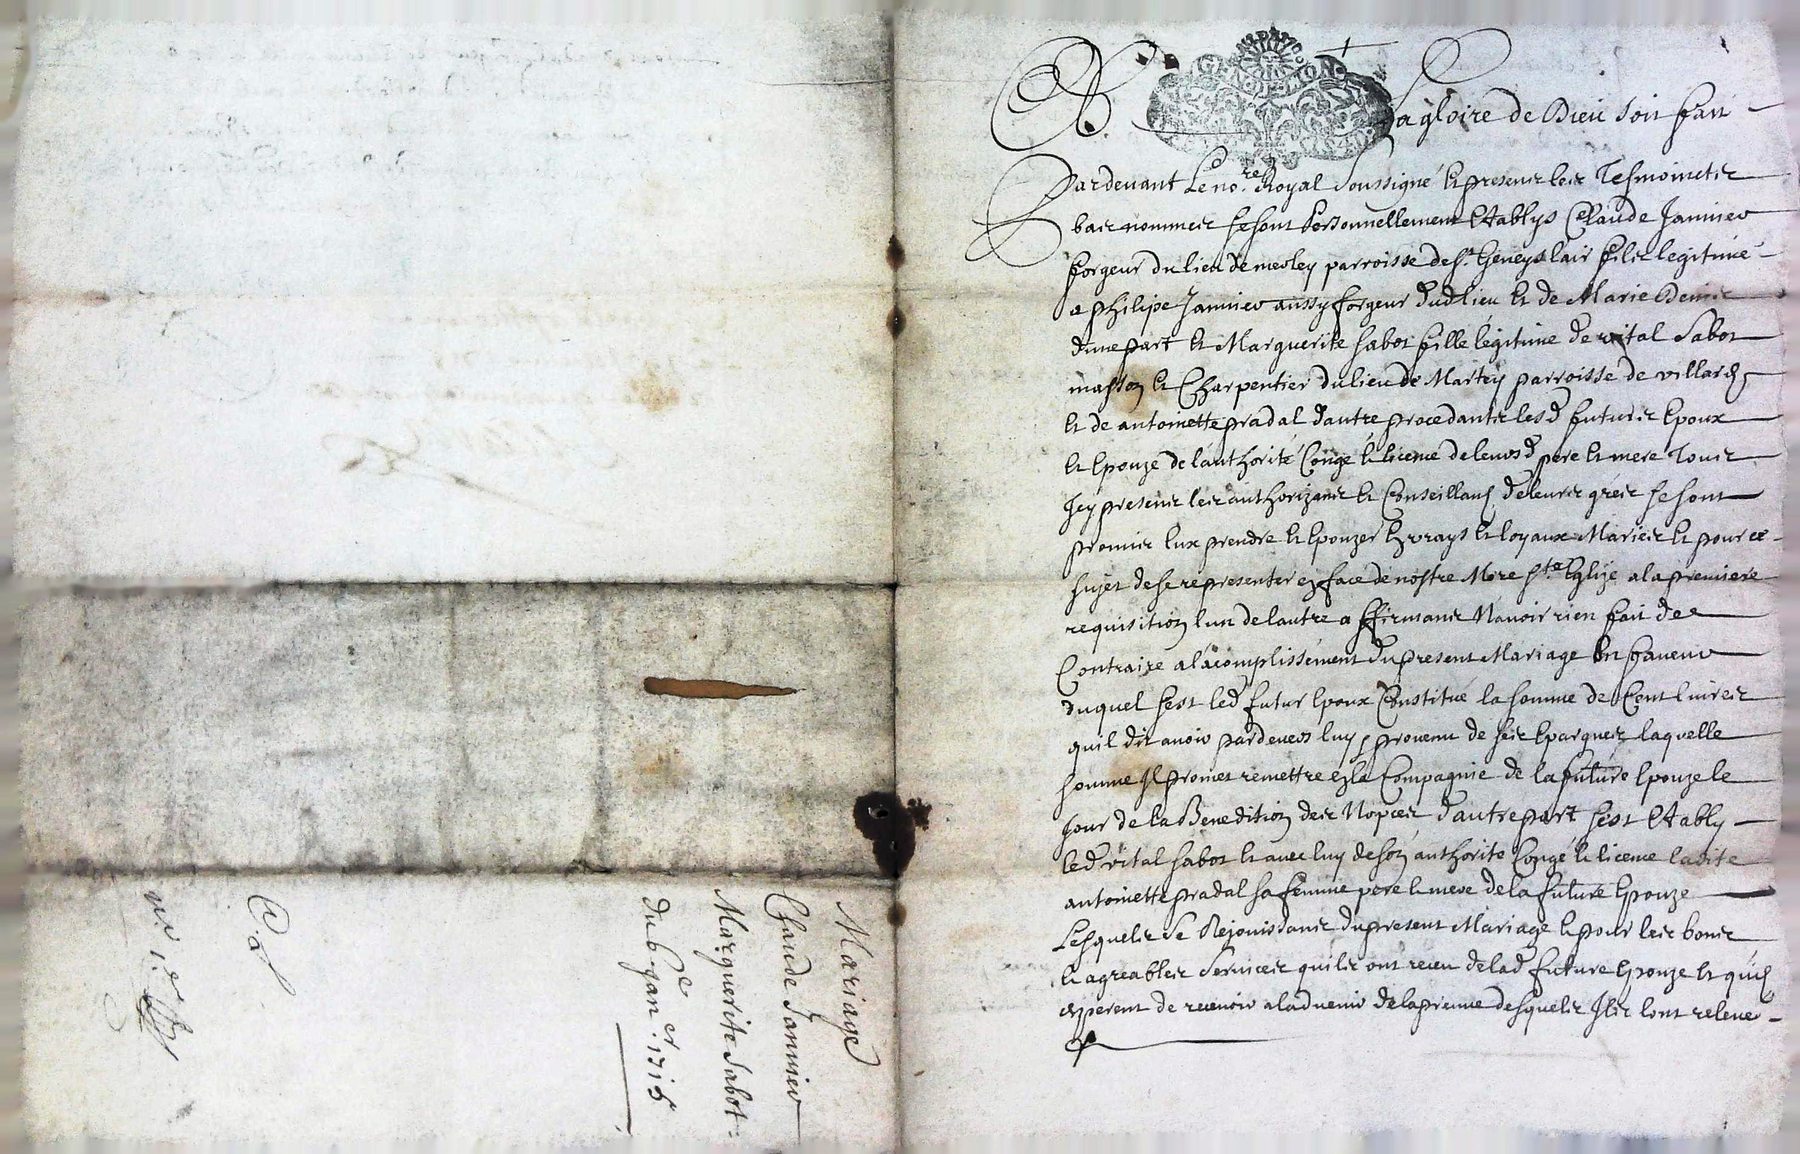 Mariage
Claude Jannier
Marguerite Sabot
du 6e janer. 1716
GEN MON
A la gloire de Dieu soit fait
Pardevant Le nore Royal soussigné et presents les Tesmoints
bas nommés se sont personnellement Etablys Claude Jannier
forgeur du lieu de meoley parroisse de St Geneys lair fils legitime
a philipe Jannier aussy forgeur dud lieu et de Marie
dune part et Marguerite Sabot fille legitime de vital Sabot
masson et Charpentier du lieu de Martey parroisse de villards
et de antoinette pradal dautre procedants lesd futurs Epoux
et Epouze de lauthorité Congé et licence de leurs d pere et mere Tous
Jcy presents les authorizants et Conseillants de leurs grés se sont
promis eux prendre et Epouzer en vrays et loyaux Mariés et pour ce
sujet de se representer en face de nostre Mere Ste Eglize a la premiere
requisition lun de lautre affirmants Navoir rien fait de
Contraire a lacomplissement du present Mariage En faveur
duquel sest led futur Epoux Constitué la somme de Cent livres
quil dit avoir pardevers luy provenu de ses Epargnes laquelle
somme Jl promet remettre en la Compagnie de la future Epouze le
Jour de la Benedition des Nopces dautre part sest Etably
led vital Sabot et avec luy de son authorité Congé et licence ladite
antoinette pradal sa femme pere et mere de la future Epouze
Lesquels se Rejouissants du present Mariage et pour les bons
et agreables services quils ont receu de lad future Epouze et quils
esperent de recevoir a ladvenir de la preuve desquels Jls lont releve